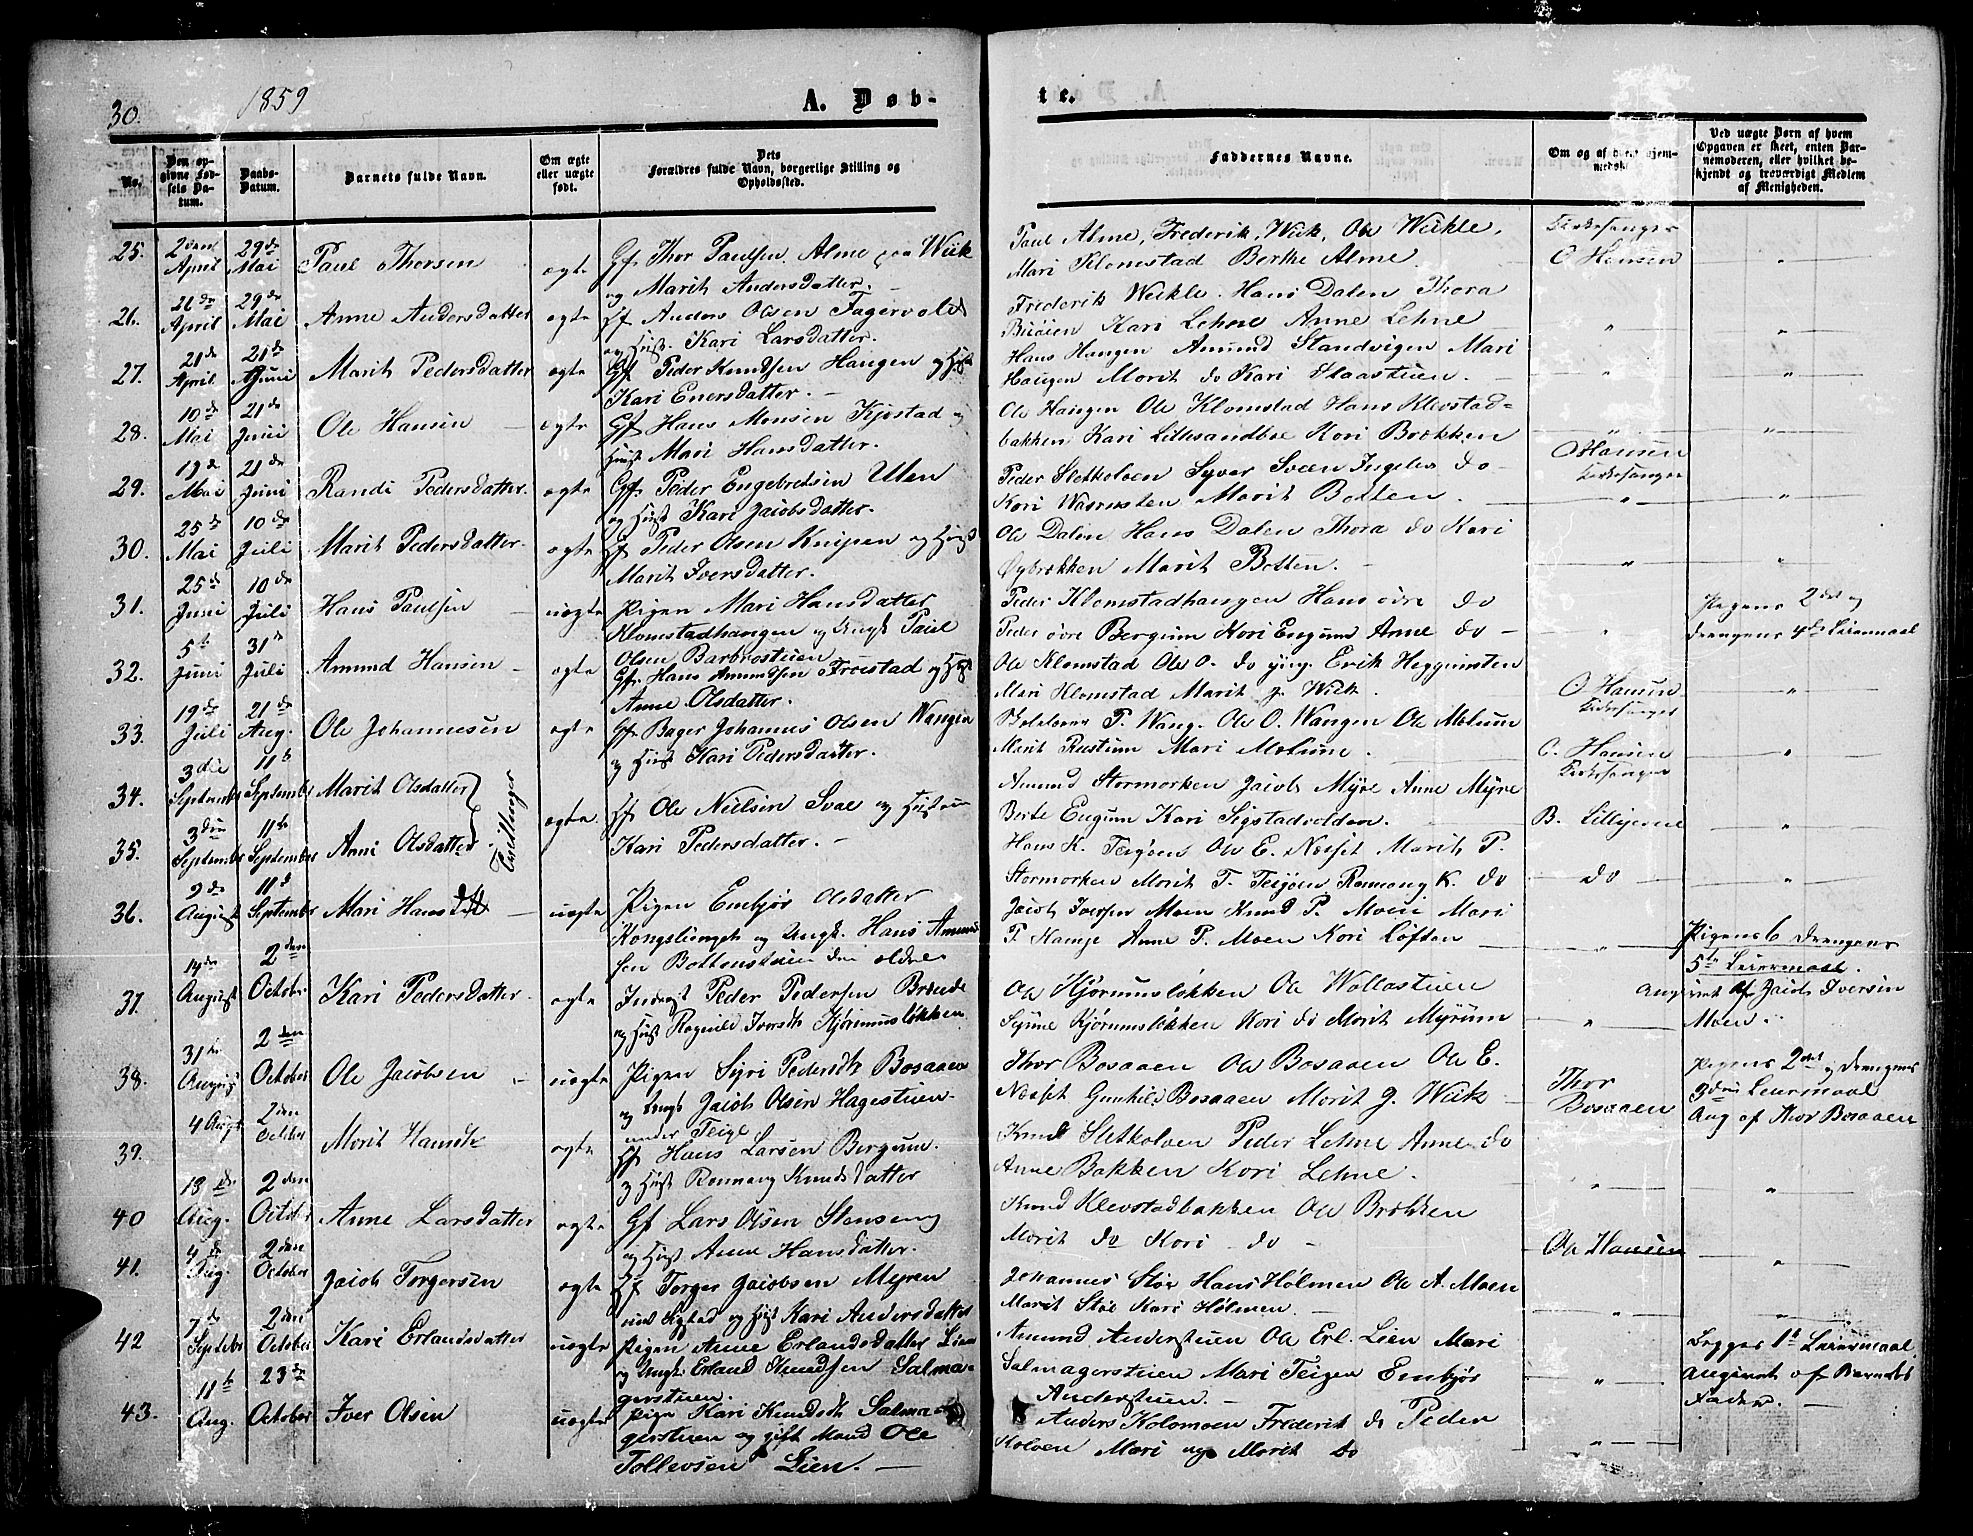 30.
1859
A. Døb-
te.
No.
Den opgivne Fødsels Datum.
Daabs-Datum.
Barnets fulde Navn.
Om ægte eller uægte født.
Dets Forældres fulde Navn, borgerlige Stilling og Opholdssted.
Faddernes Navne.
Om og af hvem hjemmedøbt.
Ved uægte Børn af hvem Opgaven er skeet, enten Barnemoderen, eller hvilket bekjendt og troværdigt Medlem af Menigheden.
25. 2den April 29de Mai Paul Thorsen ægte Gf. Thor Paulsen Alme paa Wiik
og Marit Andersdatter.
Paul Alme, Frederik Wiik, Ole Weikle,
Mari Klomstad Berthe Alme.
Kirkesanger
O Hansen
26. 26de April 29de Mai Anne Andersdatter ægte Hf. Anders Olsen Fagervold
og Hust. Kari Larsdatter.
Frederik Weikle. Hans Dalen Thora
Kari Lehne Anne Lehne
27. 21de April 21de Juni Marit Pedersdatter ægte Gf. Peder Knudsen Haugen og Hust
Kari Enersdatter.
Hans Haugen Amund Standvigen Mari
Haugen Marit do Kari
28. 10de Mai 21de Juni Ole Hansen ægte Gf. Hans Monsen Kjøstad og
Hust Mari Hansdatter.
Ole Haugen Ole Klomstad Hans Klevstad-
bakken Kari Kari Brækken
29. 19de Mai 21de Juni Randi Pedersdatter. ægte Gf. Peder Engebretsen Ulen
og Hust Kari Jacobsdatter.
Peder Sletkolven Syver Sveen Ingelev do
Kari Marit Botten.
O Hansen
Kirkesanger
30. 25de Mai 10de Juli Marit Pedersdatter. ægte Hf. Peder Olsen Knipen og Hust
Marit Iversdatter.
Ole Dalen Hans Dalen Thora do Kari
Øybrækken Marit Botten.
31. 25de Juni 10de Juli Hans Paulsen uægte Pigen Mari Hansdatter
Klomstadhaugen og Ungk. Paul
Olsen Barbrostuen
Peder Klomstadhaugen Hans øvre do
Peder øvre Bergum Kari Engum Anne do
Pigens 2det og
Drengens 4de Leiermaal
32. 5te Juni 31te Juli Amund Hansen ægte Gf. Hans Amundsen Frøistad og Hust
Anne Olsdatter.
Ole Klomstad Ole O. do yng. Erik Heggumsten
Mari Klomstad Marit g. Wiik.
O Hansen
Kirkesanger
33. 19de Juli 21de Aug. Ole Johannesen ægte Gf. Bager Johannes Olsen Wangen
og Hust Kari Pedersdatter.
P. Wang. Ole O. Wangen Ole Melum
Marit Rustum Mari Melum.
O. Hansen
Kirkesanger
34. 3die September 11te September Marit Olsdatter
Tvillinger
ægte. Hf. Ole Nielsen Svae og Hustrue
Kari Pedersdatter.
Amund Stormorken Jacob Myre Anne Myre
Berte Engum Kari Sigstadvolden.
B. Lillijerne
35. 3die September 11te September Anne Olsdatter
Hans K. Teigøen Ole E. Næsset Marit P.
Stormorken Marit T. Teigøen Rønnaug K. do
do
36. 9de August 11te September Mari Hansdatt uægte Pigen Embjør Olsdatter
Kongsliengen og Ungk. Hans Amund-
sen Bottenstuen den ældre
Jacob Iversen Moen Knud P. Moen Mari
P. Kampe Anne P. Moen Kari Loften
Pigens 6 Drengens
5te Leiermaal.
Angivet af Jacob Iversen
Moen.
37. 14de August 2den October Kari Pedersdatter. ægte Inderst Peder Pedersen Brænde
og Hust Ragnild Iversdtr Kjørumsløkken.
Ole Kjørumsløkken Ole Wollastuen
Synne Kjørumsløkken Kari do Marit Myrum
38. 31te August 2den October Ole Jacobsen uægte Pigen Syri Pedersdtr Bosaaen
og Ungk Jacob Olsen Hagestuen
under Teige
Thor Bosaaen Ole Bosaaen Ole E.
Næsset Gunhild Bosaaen Marit g. Wiik
Thor
Bosaaen
Pigens 2det og Drengens
3die Leiermaal
Ang af Thor Bosaaen
39. 4 Aug. 2den October Marit Hansdtr ægte Hf Hans Larsen Bergum.
og Hust Rønnaug Knudsdatter
Knud Sletkolven Peder Lehne Anne do
Anne Bakken Kari Lehne.
40 13de Aug. 2den October Anne Larsdatter ægte Gf Lars Olsen Stenseng
og Hust Anne Hansdatter.
Knud Klevstadbakken Ole Brækken
Marit do Kari do
Ole Hansen
41. 4de Aug. 2den October Jacob Torgersen ægte Hf Torger Jacobsen Myren
und Sigstad og Hust Kari Andersdatter
Johannes Støe Hans Holmen Ole A. Moen
Marit Støe Kari Holmen.
42 7de Septebr 2den October Kari Erlandsdatter uægte Pigen Anne Erlandsdatter Lien
og Ungk. Erland Knudsen Salma-
gerstuen.
Amund Anderstuen Ole Erl. Lien Mari
Salmagerstuen Mari Teigen Embjør
Anderstuen.
Begges 1te Leiermaal
Angivet af Barnets
Fader.
43. 11te Aug. 23de October Iver Olsen uægte Pige Kari Knudsdtr Salma-
gerstuen og gift Mand Ole
Tollevsen Lien.
Anders Kolomoen Frederik do Peder
Kolven Mari og Marit do